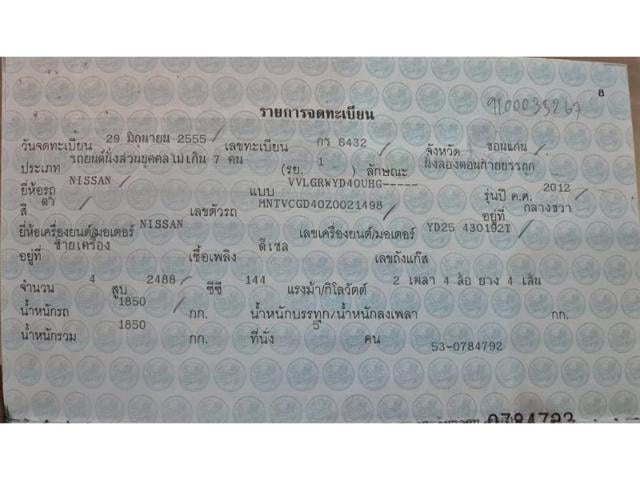 8
9100035267
รายการจดทะเบียน
วันจดทะเบียน 29 มิถุนายน 2555 เลขทะเบียน กร 6432 จังหวัด ขอนแก่น
ประเภท รถยนต์นั่งส่วนบุคคลไม่เกิน 7 คน (รย. 1 ) ลักษณะ นั่งสองตอนท้ายบรรทุก
ยี่ห้อรถ NISSAN แบบ VVLGRWYD40UHG----- รุ่นปี ค.ศ. 2012
สี ดำ เลขตัวรถ MNTVCGD40Z0021498 อยู่ที่ กลางขวา
ยี่ห้อเครื่องยนต์/มอเตอร์ NISSAN เลขเครื่องยนต์/มอเตอร์ YD25 430192T
อยู่ที่ ซ้ายเครื่อง เชื้อเพลิง ดีเซล เลขถังแก๊ส
จำนวน 4 สูบ 2488 ซีซี 144 แรงม้า/กิโลวัตต์ 2 เพลา 4 ล้อ ยาง 4 เส้น
น้ำหนักรถ 1850 กก. น้ำหนักบรรทุก/น้ำหนักลงเพลา กก.
น้ำหนักรวม 1850 กก. ที่นั่ง 5 คน
53-0784792
0784793